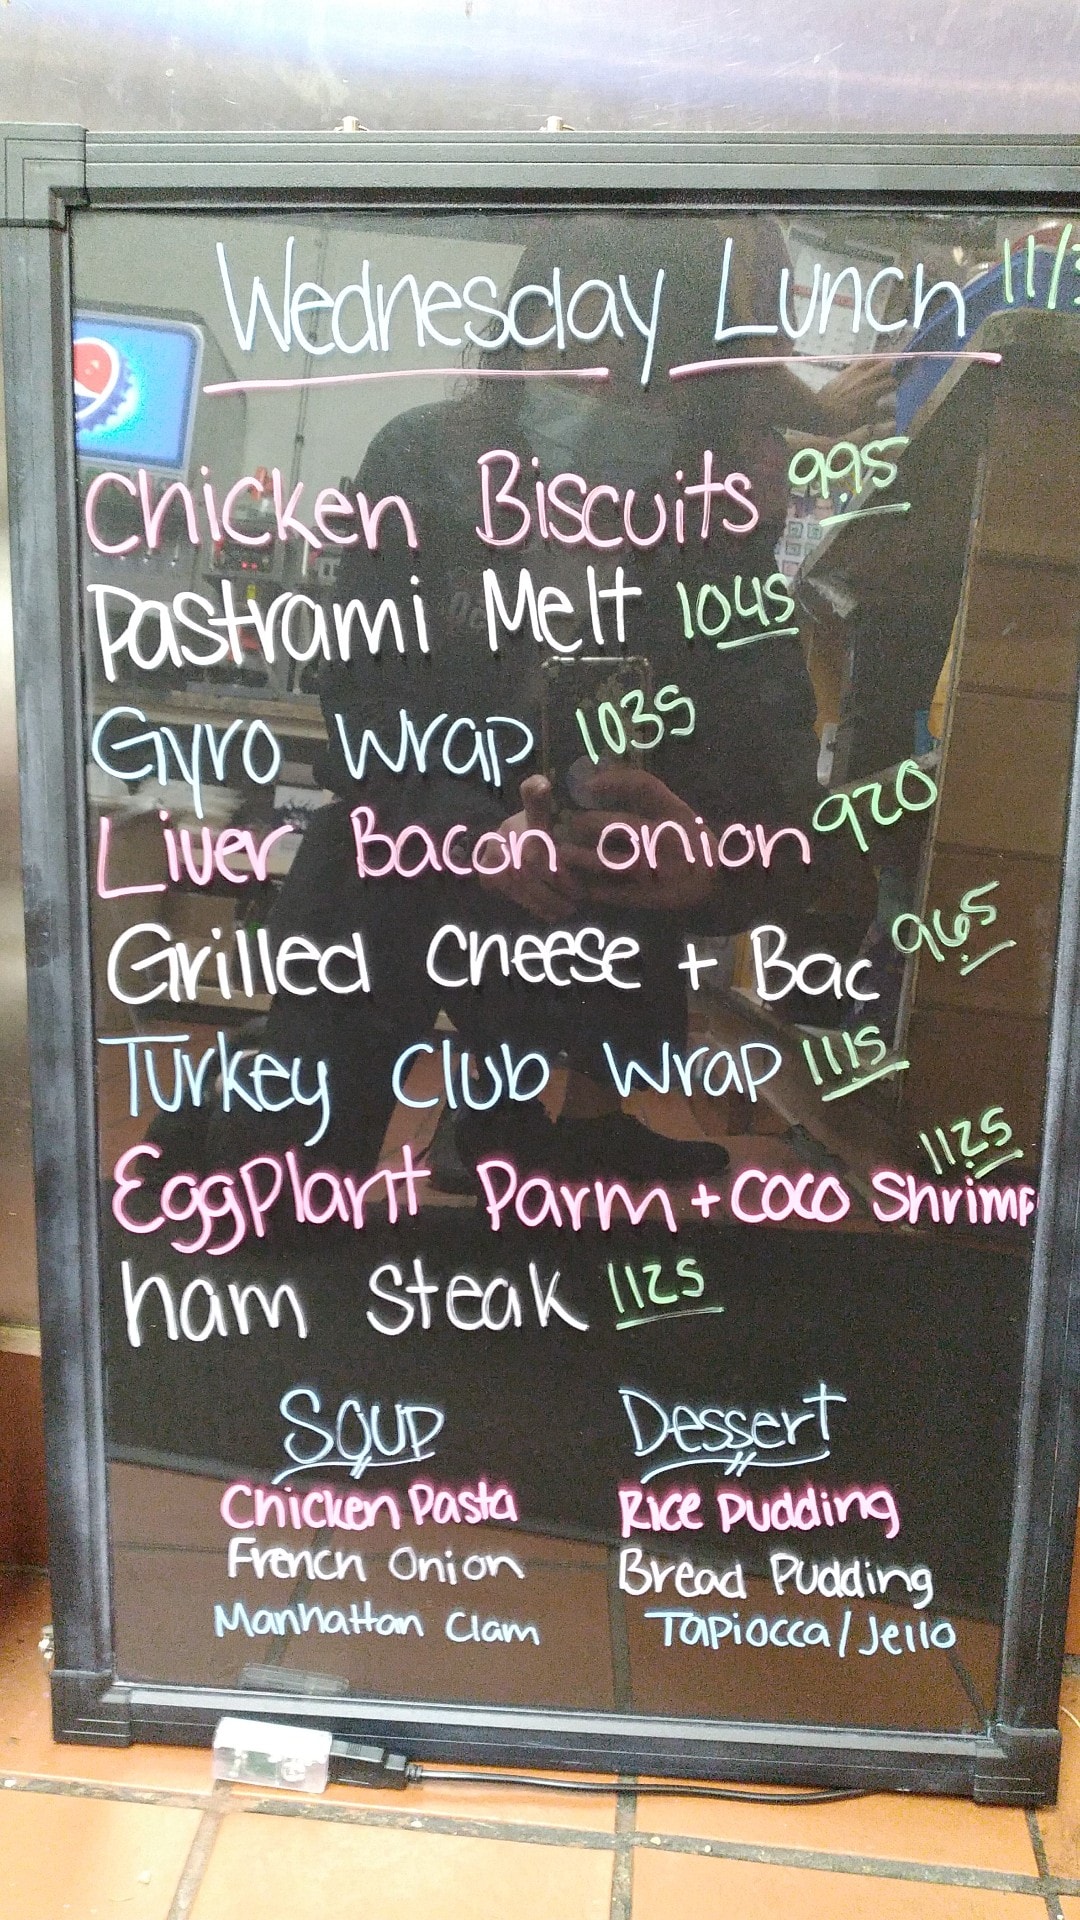 Wednesday Lunch 11/3
Chicken Biscuits 995
Pastrami Melt 1045
Gyro Wrap 1035
Liver Bacon onion 920
Grilled Cheese + Bac 965
Turkey Club Wrap 1115
EggPlant Parm + Coco Shrimp 1125
ham Steak 1125
Soup
Dessert
Chicken Pasta
Rice Pudding
French Onion
Bread Pudding
Manhattan Clam
Tapiocca/Jello